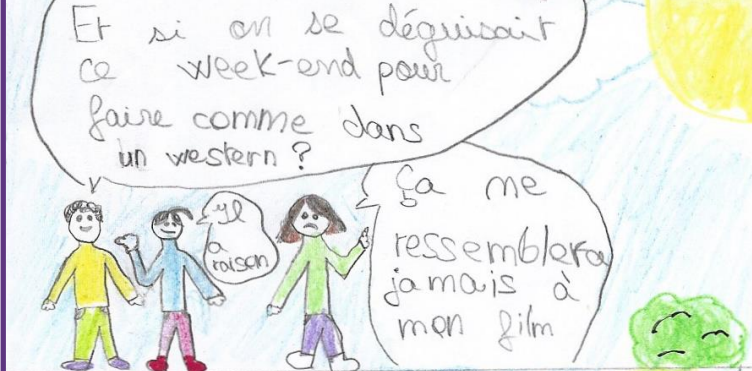 Et si on se déguisait
ce week-end pour
faire comme dans
un western ?
Il
a
raison
Ça ne
ressemblera
jamais à
mon film